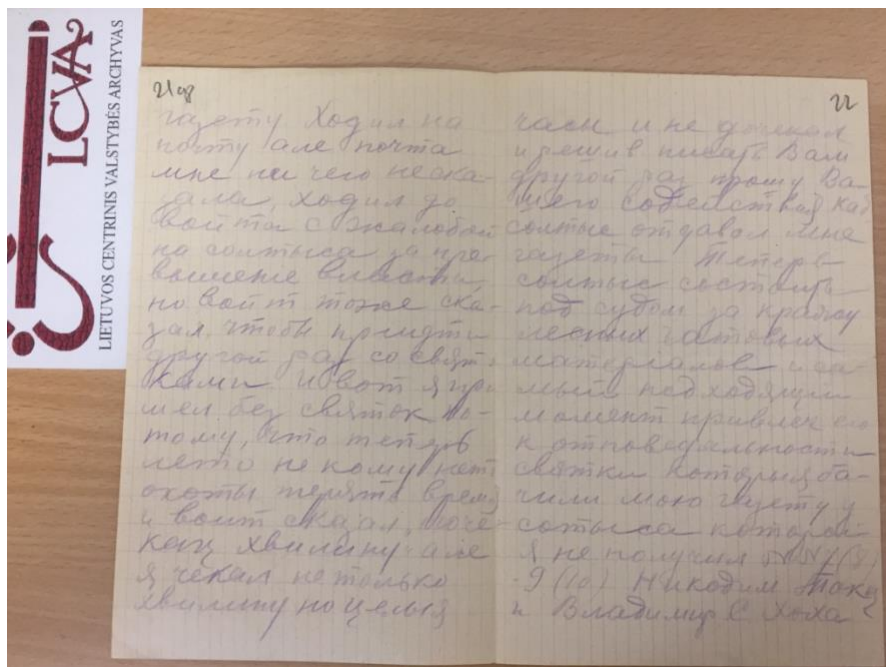 LCVA
LIETUVOS CENTRINIS VALSTYBĖS ARCHYVAS
21об
газету Ходил на
почту але почта
мне ни чего неска-
зала, ходил до
войта с жалобой
на солтыса за пре-
вышение власти,
но войт тоже ска-
зал, чтобы придти
другой раз со свят-
ками и вот я при
шел без святок по-
тому, что теперь
лето не кому нет
охоты терять время
и войт сказал, поче-
кац хвилину але
я чекал не только
хвилину но целыя
22
часы и не дочекал
и решив писать Вам
другой раз прошу Ва-
шего содействия каб
солтыс отдавал мне
газеты Теперь
солтыс состоить
под судом за кражу
лесных
матеріалов и са-
мый подходящій
момент привлеч его
к отповедальности
святки которыя ба-
чили мою газету у
сотыса которой
я не получил
9 (10) Никодим
и Владимир С. Хоха